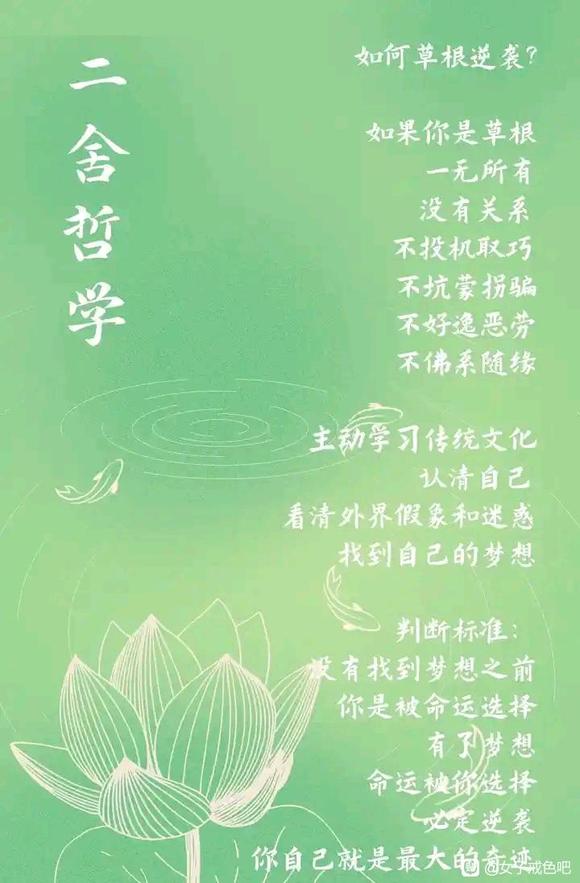 二舍哲学
如何草根逆袭？
如果你是草根
一无所有
没有关系
不投机取巧
不坑蒙拐骗
不好逸恶劳
不佛系随缘
主动学习传统文化
认清自己
看清外界假象和迷惑
找到自己的梦想
判断标准：
没有找到梦想之前
你是被命运选择
有了梦想
命运被你选择
必定逆袭
你自己就是最大的奇迹
@女子戒色吧